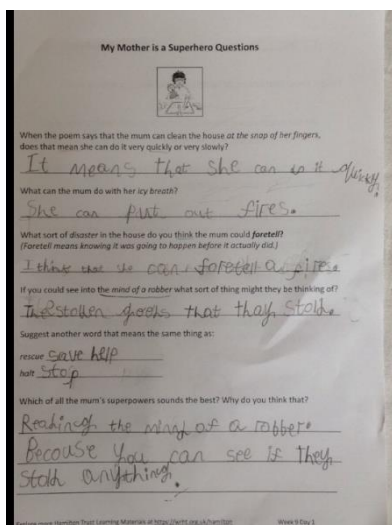 My Mother is a Superhero Questions
When the poem says that the mum can clean the house at the snap of her fingers,
does that mean she can do it very quickly or very slowly?
It means that she can do it quickly.
What can the mum do with her icy breath?
She can put out fires.
What sort of disaster in the house do you think the mum could foretell?
(Foretell means knowing it was going to happen before it actually did.)
I think that she can foretell a fire.
If you could see into the mind of a robber what sort of thing might they be thinking of?
The stolen goods that thay stold.
Suggest another word that means the same thing as:
rescue save help
halt stop
Which of all the mum's superpowers sounds the best? Why do you think that?
Reahing the mind of a robber.
Becouse you can see if they
stold anything.
Explore more Hamilton Trust Learning Materials at https://wrht.org.uk/hamilton
Week 9 Day 1